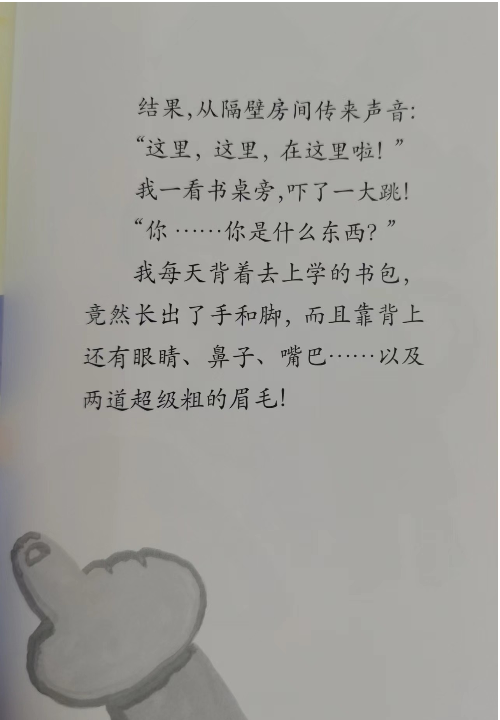 结果,从隔壁房间传来声音:
“这里, 这里, 在这里啦! ”
我一看书桌旁,吓了一大跳!
“你 ……你是什么东西? ”
我每天背着去上学的书包,
竟然长出了手和脚, 而且靠背上
还有眼睛、鼻子、嘴巴……以及
两道超级粗的眉毛!